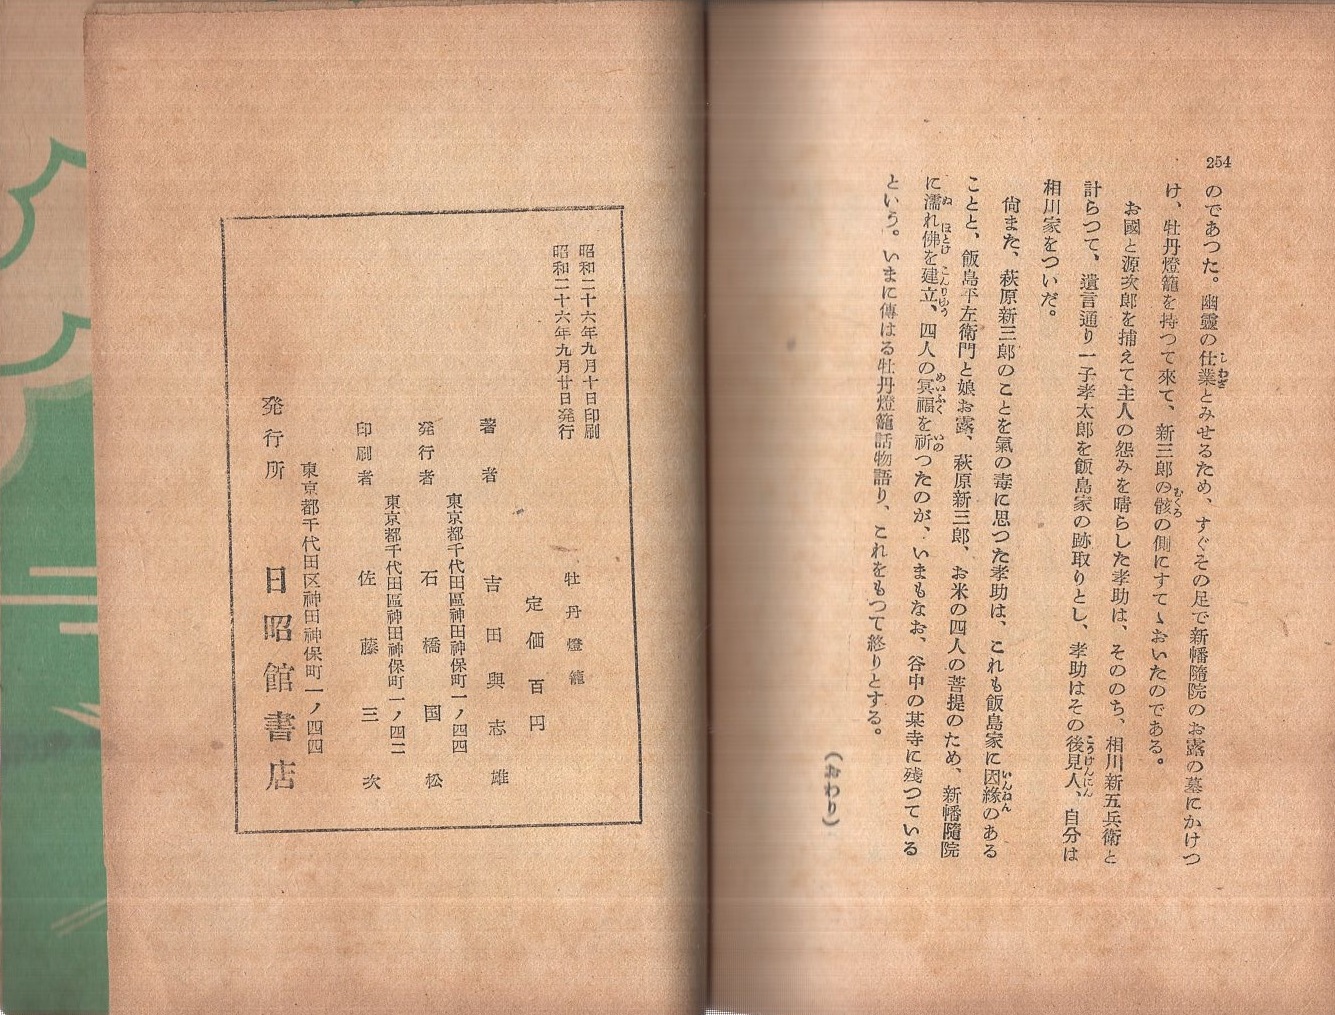 254
のであつた。幽靈の仕業とみせるため、すぐその足で新幡隨院のお露の墓にかけつ
け、牡丹燈籠を持つて來て、新三郎の骸の側にすてゝおいたのである。
お國と源次郎を捕えて主人の怨みを晴らした孝助は、そののち、相川新五兵衛と
計らつて、遺言通り一子孝太郎を飯島家の跡取りとし、孝助はその後見人、自分は
相川家をついだ。
尙また、萩原新三郎のことを氣の毒に思つた孝助は、これも飯島家に因緣のある
ことと、飯島平左衛門と娘お露、萩原新三郎、お米の四人の菩提のため、新幡隨院
に濡れ佛を建立、四人の冥福を祈つたのが、いまもなお、谷中の某寺に残つている
という。いまに傳はる牡丹燈籠話物語り、これをもつて終りとする。
（おわり）
昭和二十六年九月十日印刷
昭和二十六年九月廿日発行
牡丹燈籠
定価百円
著者 吉田與志雄
東京都千代田區神田神保町一ノ四四
発行者 石橋国松
東京都千代田區神田神保町一ノ四二
印刷者 佐藤三次
東京都千代田区神田神保町一ノ四四
発行所 日昭館書店